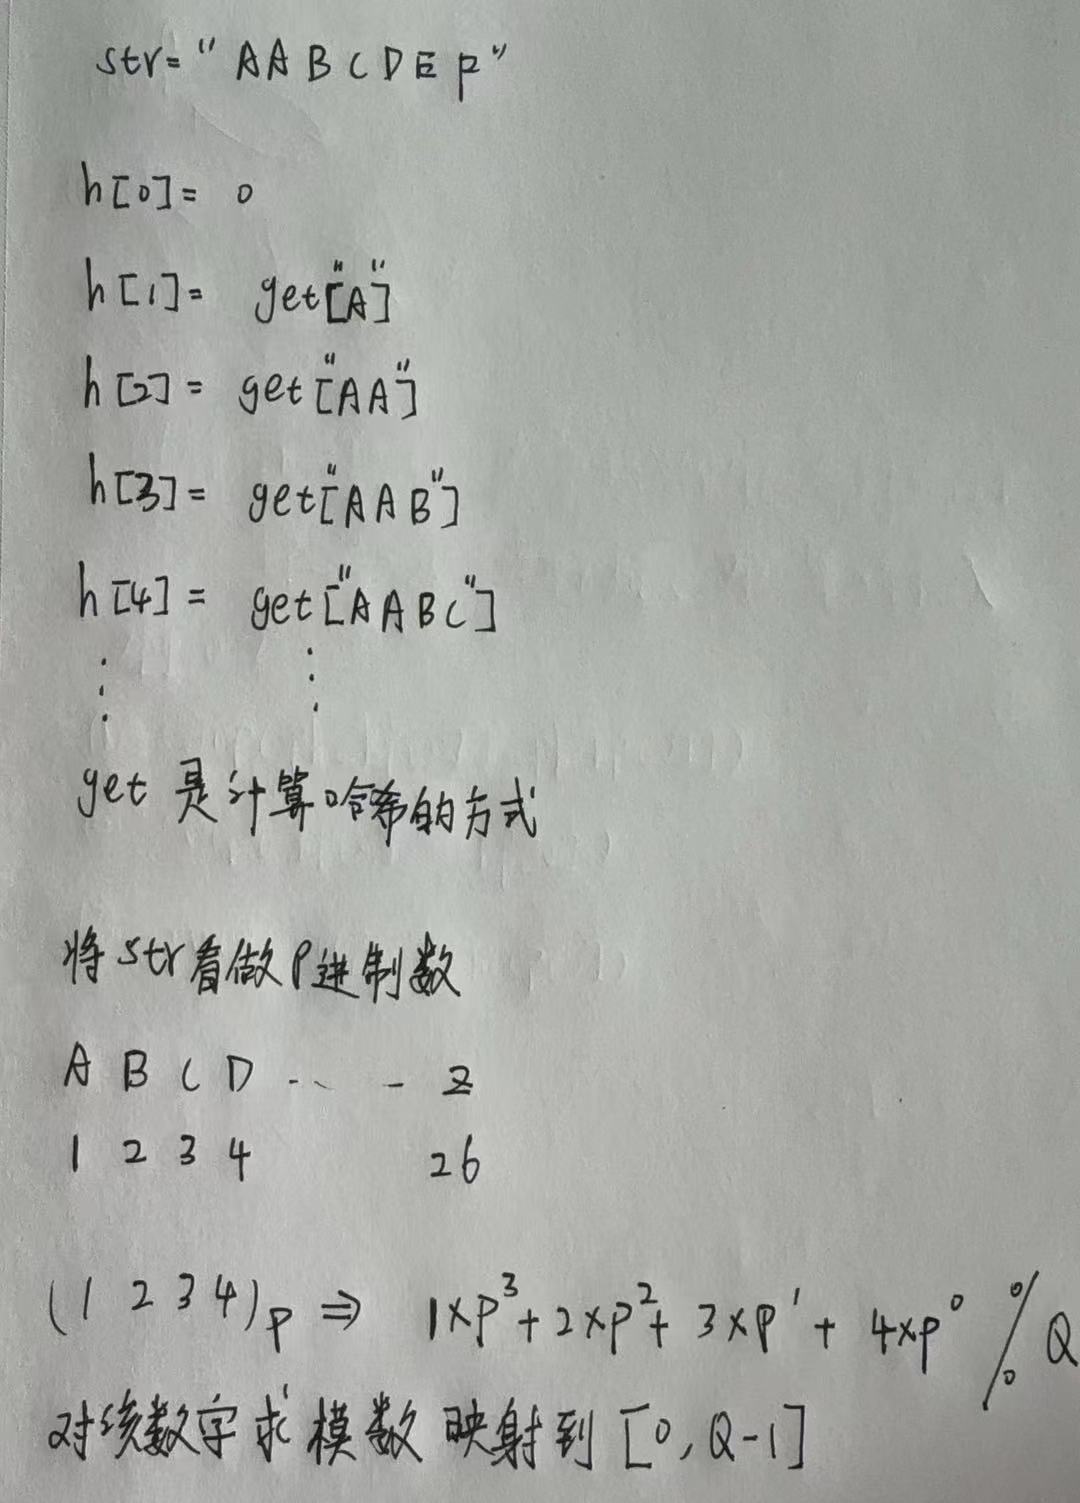 str="AABCDEF"
h[0]= 0
h[1]= get["A"]
h[2]= get["AA"]
h[3]= get["AAB"]
h[4]= get["AABC"]
⋮ ⋮
get 是计算哈希的方式
将str看做P进制数
A B C D ... - Z
1 2 3 4 26
(1 2 3 4)P ⇒ 1×P³+2×P²+3×P¹+4×P⁰ % Q
对该数字求模数 映射到[0,Q-1]